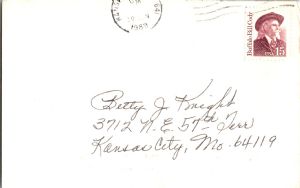 1989
Buffalo Bill Cody
USA 15
Betty J Knight
3712 N.E 57th Terr
Kansas City, Mo. 64119